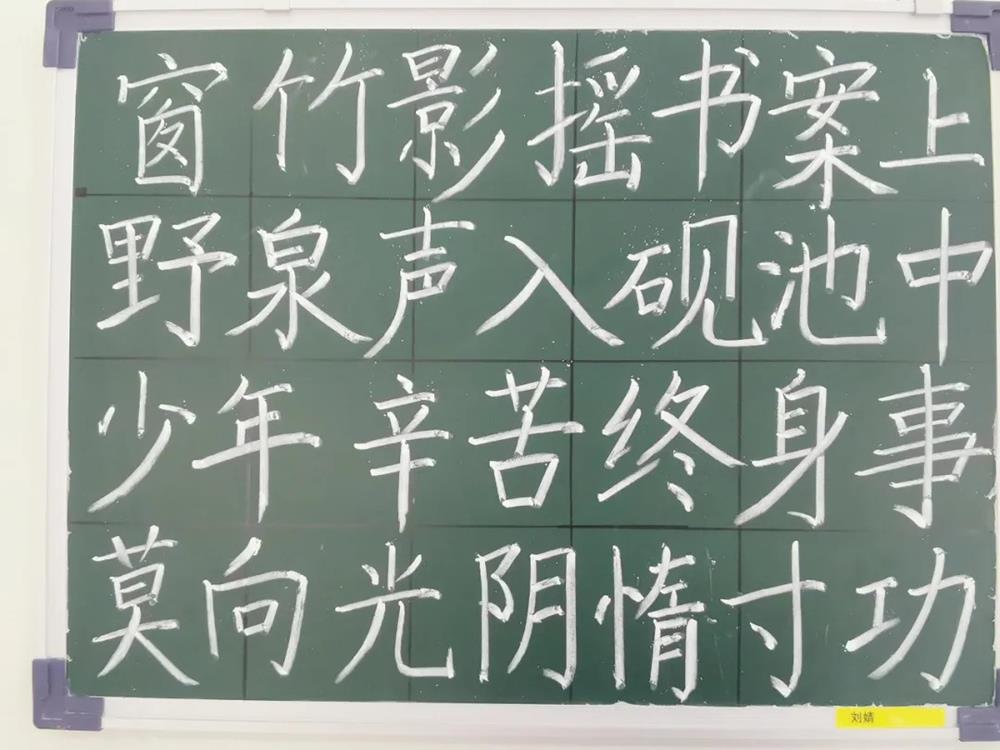 窗竹影摇书案上
野泉声入砚池中
少年辛苦终身事
莫向光阴惰寸功
刘婧